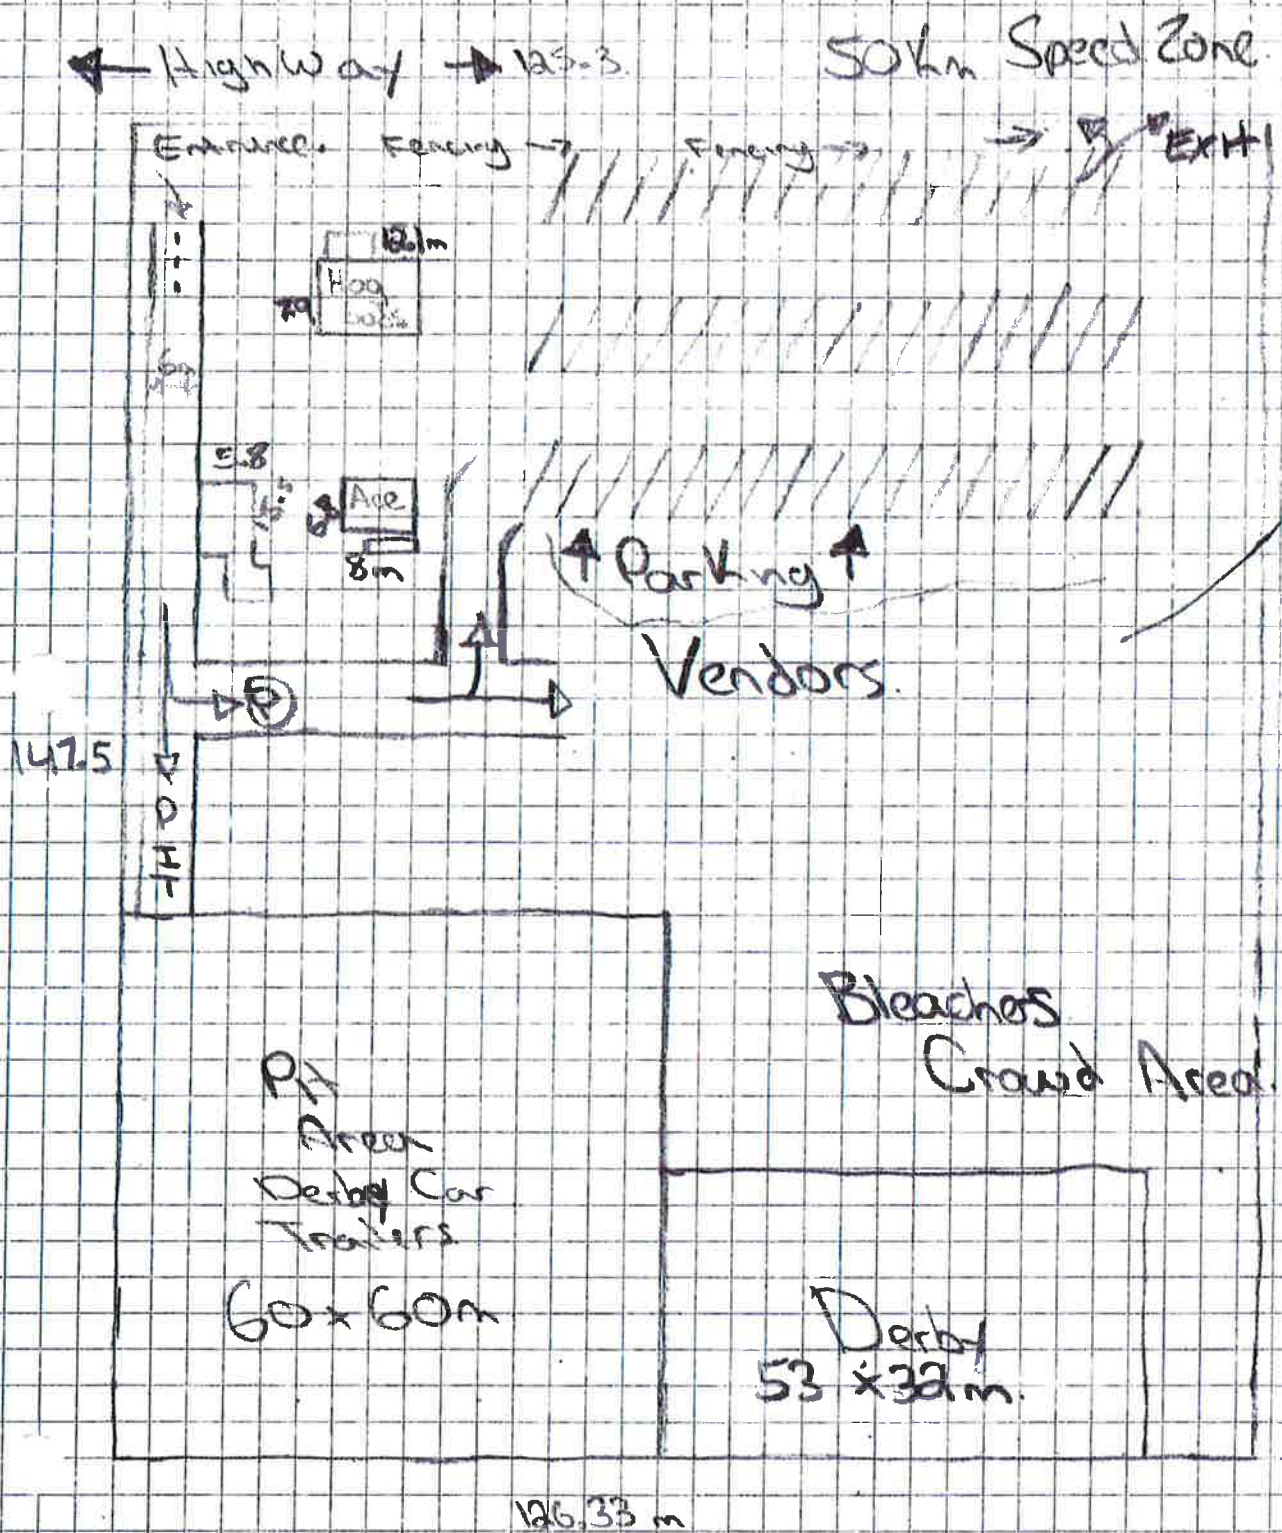 HighWay 125.3 50Km Speed Zone
Entrance. Fencing Fencing Exit
12.1m
Hog
6m
5.8
Ace
8m
Parking
Vendors.
P
147.5
PIt
Bleachers
Crowd Area.
PIt
Area
Derby Car
Trailers
60 x 60m
Derby
53 x 32m.
126.33 m